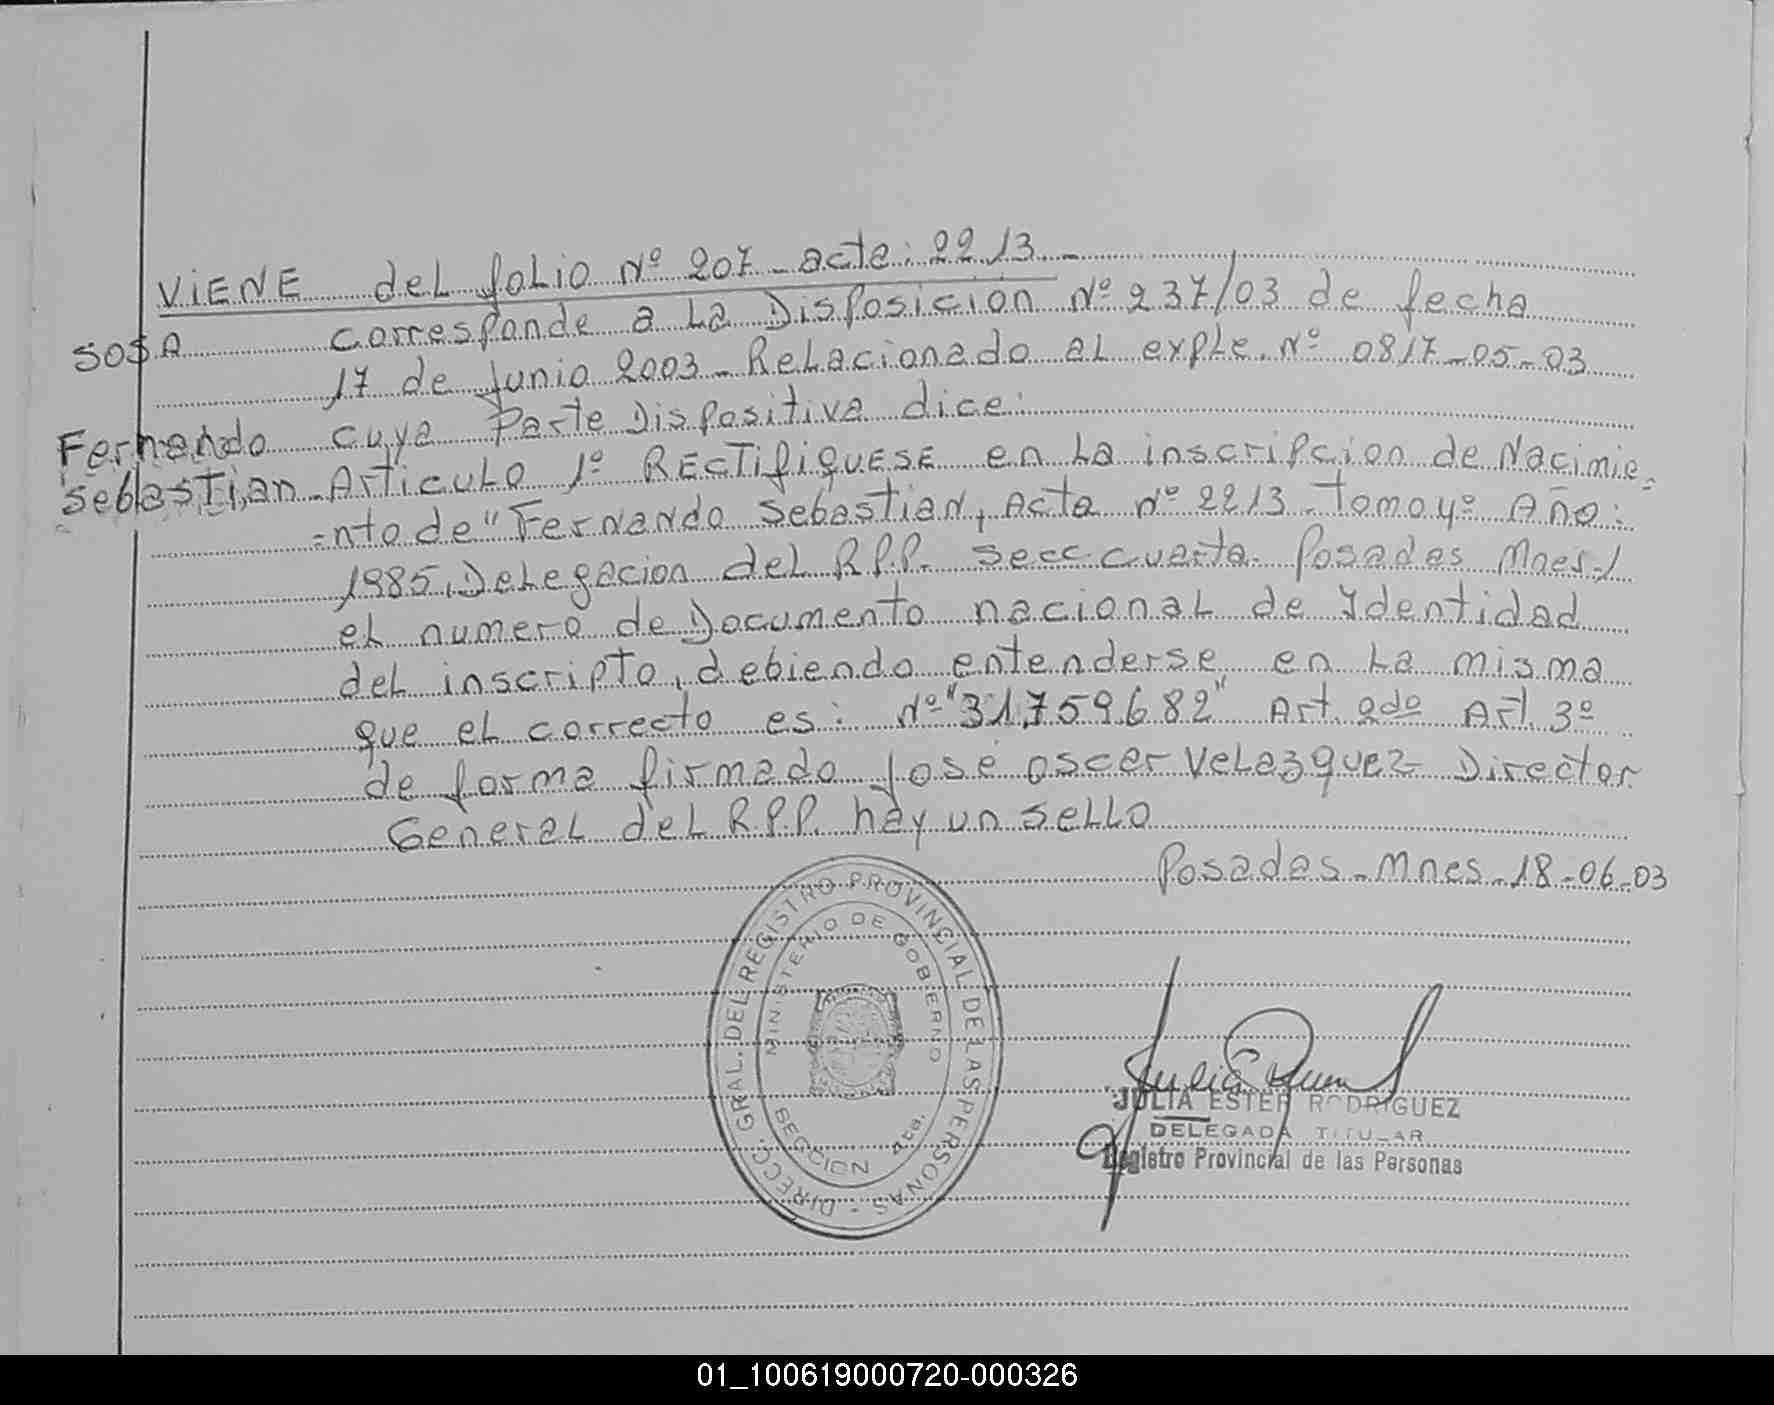 VIENE del folio Nº 207 - acta: 2213.-
SOSA corresponde a la Disposición Nº 237/03 de fecha
17 de Junio 2003 - Relacionado al expte. Nº 0817-05-03
Fernando cuya Parte Dispositiva dice:
Sebastian - Articulo 1º RECTIFIQUESE en la inscripcion de Nacimie-
-nto de "Fernando Sebastian, Acta Nº 2213 - Tomo 4º Año:
1985, Delegacion del R.P.P. Secc cuarta - Posadas Mnes-/
el numero de Documento nacional de Identidad
del inscripto, debiendo entenderse en la misma
que el correcto es: Nº "31.759.682" Art. 2do Art. 3º
de forma firmado José Oscar Velazquez - Director
General del R.P.P. hay un sello
Posadas - Mnes - 18-06-03
DIRECC. GRAL. DEL REGISTRO PROVINCIAL DE LAS PERSONAS -
MINISTERIO DE GOBIERNO
SECCION 4ta.
JULIA ESTER RODRIGUEZ
DELEGADA TITULAR
Registro Provincial de las Personas
01_100619000720-000326